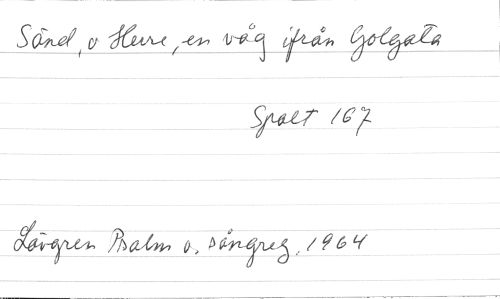 Sänd, o Herre, en våg ifrån Golgata
Spalt 167
Lövgren Psalm o. sångreg. 1964